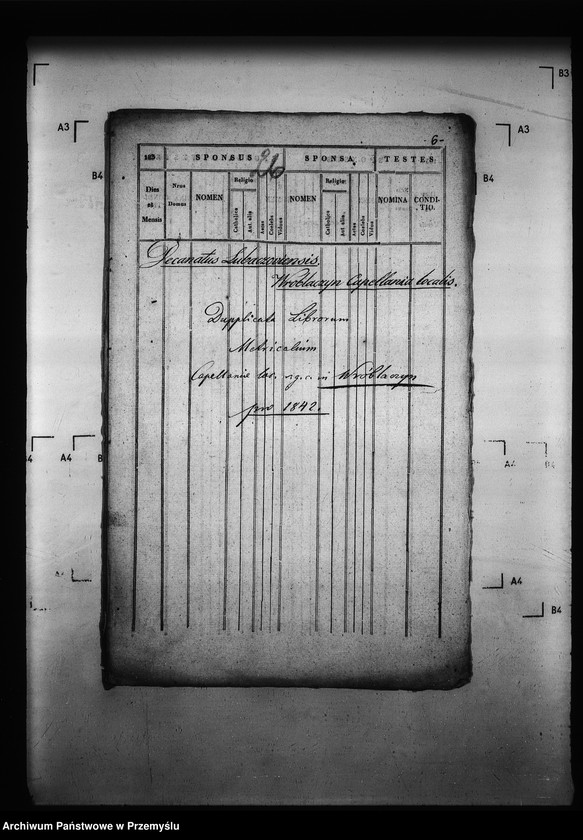 B3
A3
A3
B4
B4
- 6 -
183
SPONSUS
26
SPONSA
TESTES
Dies et Mensis
Nrus Domus
NOMEN
Religio
Catholica
Aut alia
Aetas
Caelebs
Viduus
NOMEN
Religio
Catholica
Aut alia
Aetas
Caelebs
Vidua
NOMINA
CONDI-
TIO.
Decanatus Lubaczoviensis.
Wroblaczyn Capellania localis.
Dupplicata Librorum
Metricalium
Capellaniae loc. r. g. c. in Wróblaczyn
pro 1842.
A4
A4
B4
A4
A4
B4
Archiwum Państwowe w Przemyślu